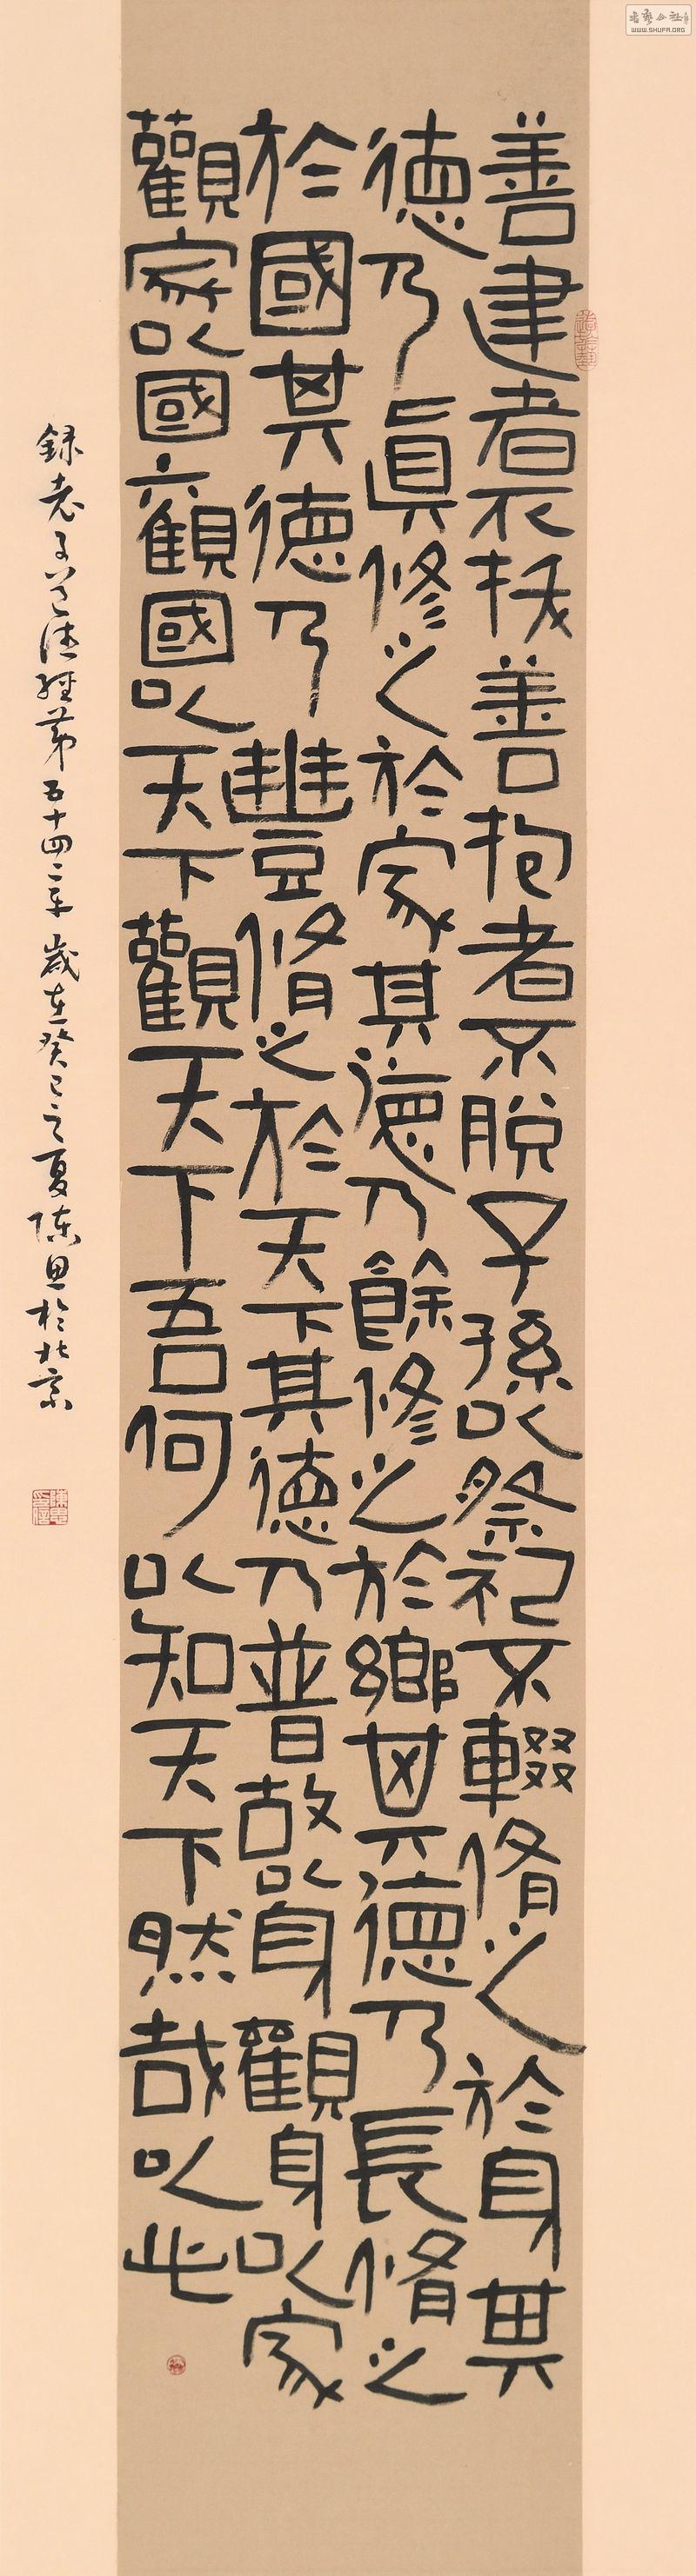 善建者不拔善抱者不脫子孫以祭祀不輟脩之於身其
德乃眞修之於家其德乃餘修之於鄉其德乃長脩之
於國其德乃豐脩之於天下其德乃普故以身觀身以家
觀家以國觀國以天下觀天下吾何以知天下然哉以此
録老子道德經第五十四章 歲在癸巳之夏陳思於北京
書藝公社
WWW.SHUFA.ORG